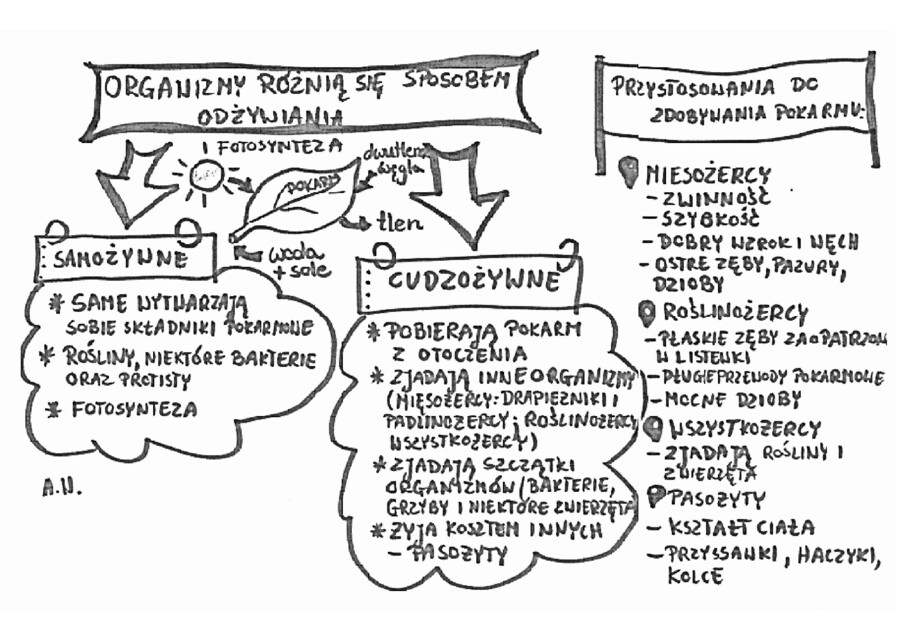 ORGANIZMY RÓŻNIĄ SIĘ SPOSOBEM
ODŻYWIANIA
FOTOSYNTEZA
dwutlenek
węgla
POKARM
tlen
woda
+ sole
SAMOŻYWNE
* SAME WYTWARZAJĄ
SOBIE SKŁADNIKI POKARMOWE
* ROŚLINY, NIEKTÓRE BAKTERIE
ORAZ PROTISTY
* FOTOSYNTEZA
A.W.
CUDZOŻYWNE
* POBIERAJĄ POKARM
Z OTOCZENIA
* ZJADAJĄ INNE ORGANIZMY
(MIĘSOŻERCY: DRAPIEŻNIKI I
PADLINOŻERCY; ROŚLINOŻERCY
WSZYSTKOŻERCY)
* ZJADAJĄ SZCZĄTKI
ORGANIZMÓW (BAKTERIE,
GRZYBY I NIEKTÓRE ZWIERZĘTA
* ŻYJĄ KOSZTEM INNYCH
- PASOŻYTY
PRZYSTOSOWANIA DO
ZDOBYWANIA POKARMU:
MIĘSOŻERCY
- ZWINNOŚĆ
- SZYBKOŚĆ
- DOBRY WZROK I WĘCH
- OSTRE ZĘBY, PAZURY,
DZIOBY
ROŚLINOŻERCY
- PŁASKIE ZĘBY ZAOPATRZON
W LISTEWKI
- DŁUGIE PRZEWODY POKARMOWE
- MOCNE DZIOBY
WSZYSTKOŻERCY
- ZJADAJĄ ROŚLINY I
ZWIERZĘTA
PASOŻYTY
- KSZTAŁT CIAŁA
- PRZYSSAWKI, HACZYKI,
KOLCE